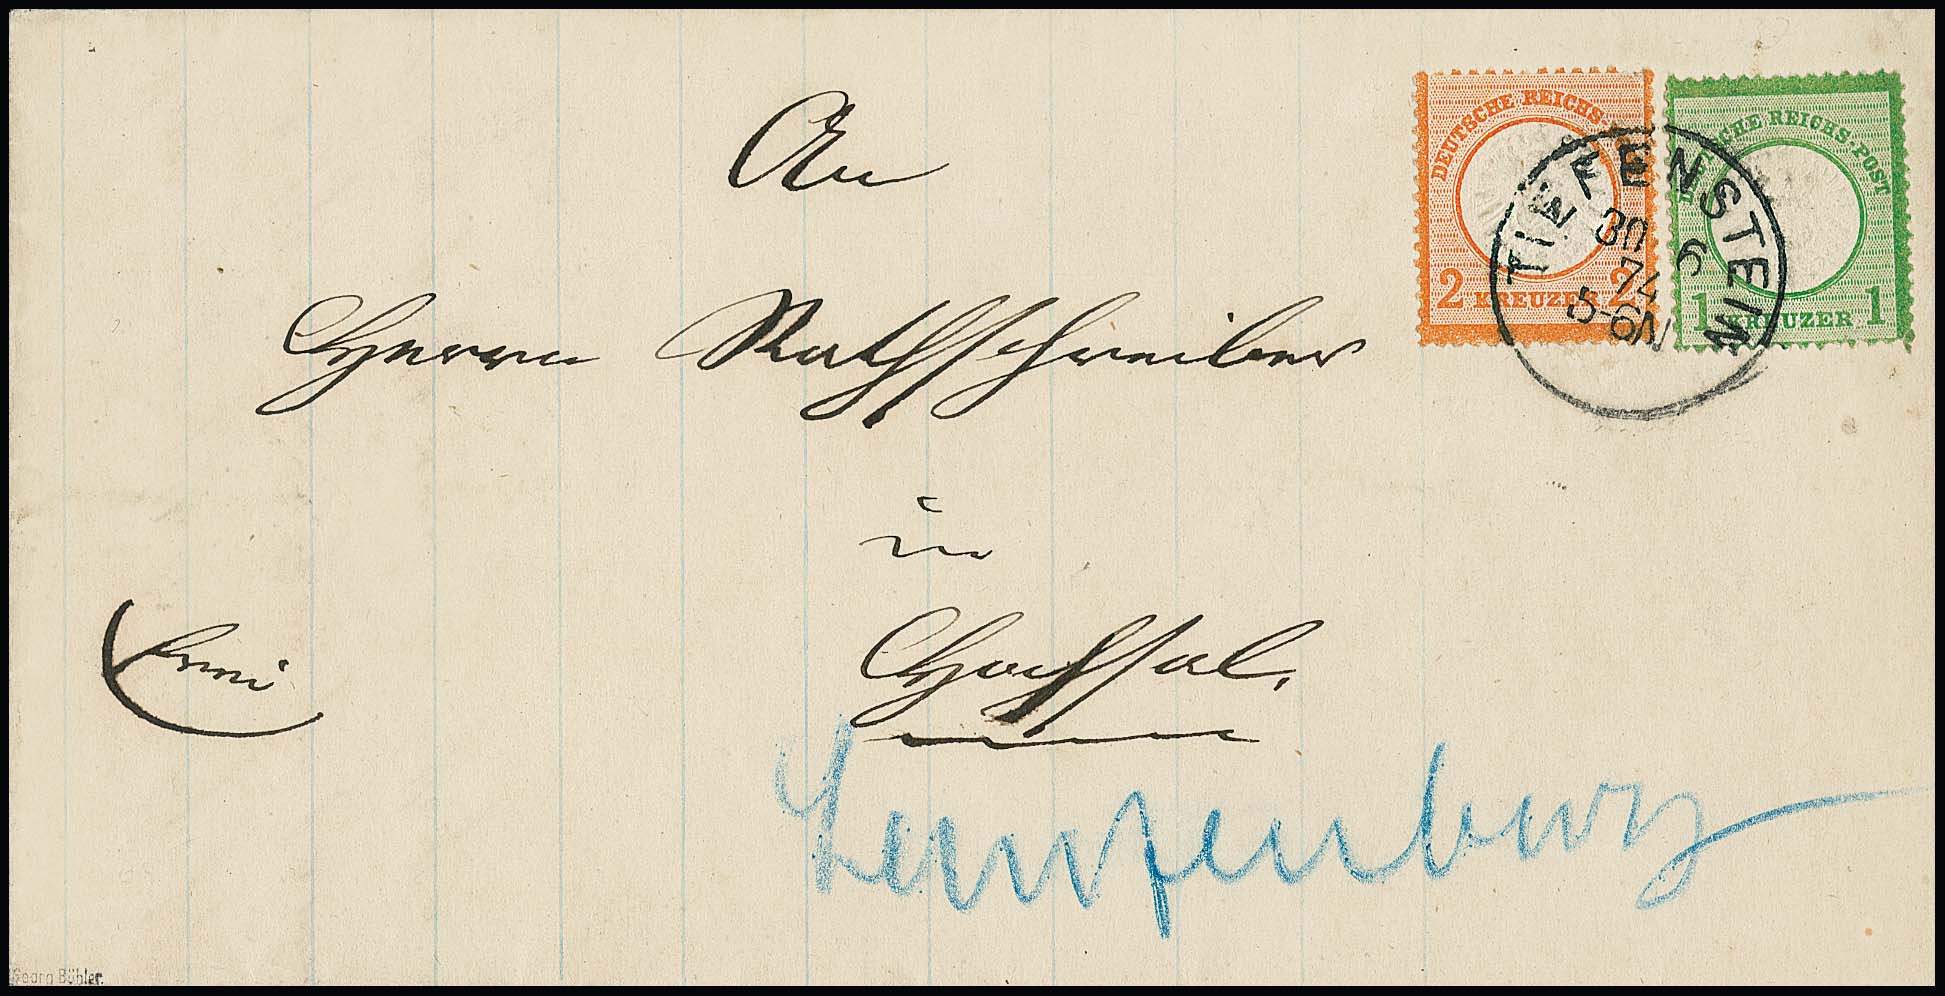 An
Herrn Rathschreiber
in
Hochsal.
frei
Laufenburg
DEUTSCHE REICHS-
2 KREUZER 2
DEUTSCHE REICHS-POST
1 KREUZER 1
TIEFENSTEIN
30 6
74
5-6N
Georg Bühler.